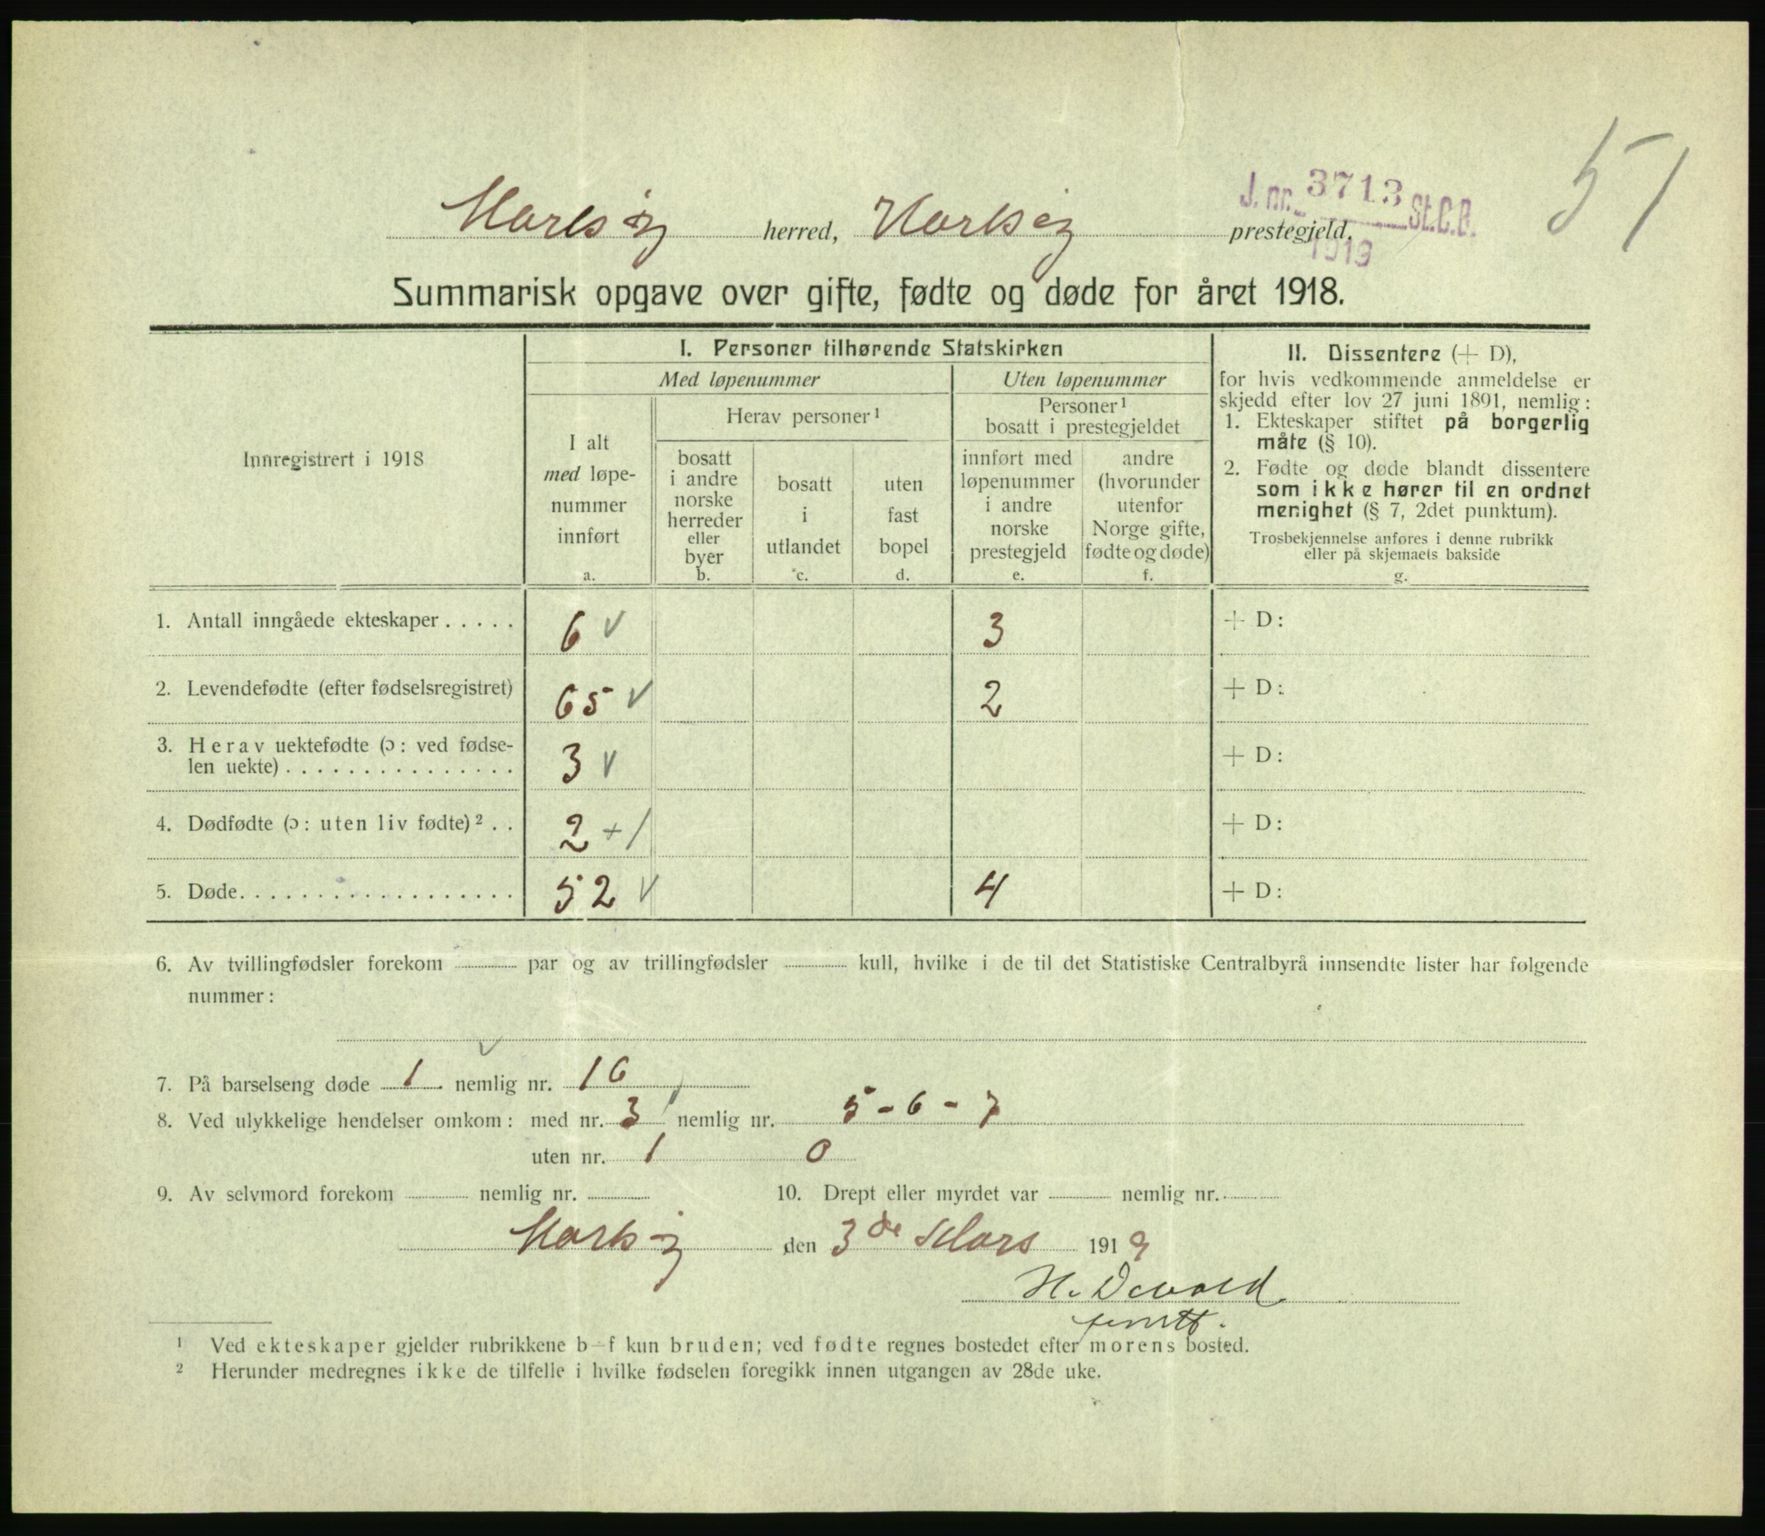 51
J. nr. 3713 St.C.B.
1919
herred, prestegjeld.
Summarisk opgave over gifte, fødte og døde for året 1918.
Innregistrert i 1918
I. Personer tilhørende Statskirken
Med løpenummer
Uten løpenummer
I alt
med løpe-
nummer
innført
a.
Herav personer ¹
bosatt
i andre
norske
herreder
eller
byer
b.
bosatt
i
utlandet
c.
uten
fast
bopel
d.
Personer ¹
bosatt i prestegjeldet
innført med
løpenummer
i andre
norske
prestegjeld
e.
andre
(hvorunder
utenfor
Norge gifte,
fødte og døde)
f.
II. Dissentere (+ D),
for hvis vedkommende anmeldelse er
skjedd efter lov 27 juni 1891, nemlig:
1. Ekteskaper stiftet på borgerlig
måte (§ 10).
2. Fødte og døde blandt dissentere
som ikke hører til en ordnet
menighet (§ 7, 2det punktum).
Trosbekjennelse anføres i denne rubrikk
eller på skjemaets bakside
g.
1. Antall inngåede ekteskaper . . . . . 6 √ 3 + D:
2. Levendefødte (efter fødselsregistret) 65 √ 2 + D:
3. Herav uektefødte (ɔ: ved fødse-
len uekte) . . . . . . . . . . . . . . . 3 √ + D:
4. Dødfødte (ɔ: uten liv fødte) ² . . 2 + 1 + D:
5. Døde . . . . . . . . . . . . . . . . . . 52 √ 4 + D:
6. Av tvillingfødsler forekom par og av trillingfødsler kull, hvilke i de til det Statistiske Centralbyrå innsendte lister har følgende
nummer:
7. På barselseng døde 1 nemlig nr. 16
8. Ved ulykkelige hendelser omkom: med nr. 3 nemlig nr. 5 - 6 - 7
uten nr. 1 0
9. Av selvmord forekom nemlig nr. 10. Drept eller myrdet var nemlig nr.
den 3de Mars 1919
¹ Ved ekteskaper gjelder rubrikkene b–f kun bruden; ved fødte regnes bostedet efter morens bosted.
² Herunder medregnes ikke de tilfelle i hvilke fødselen foregikk innen utgangen av 28de uke.